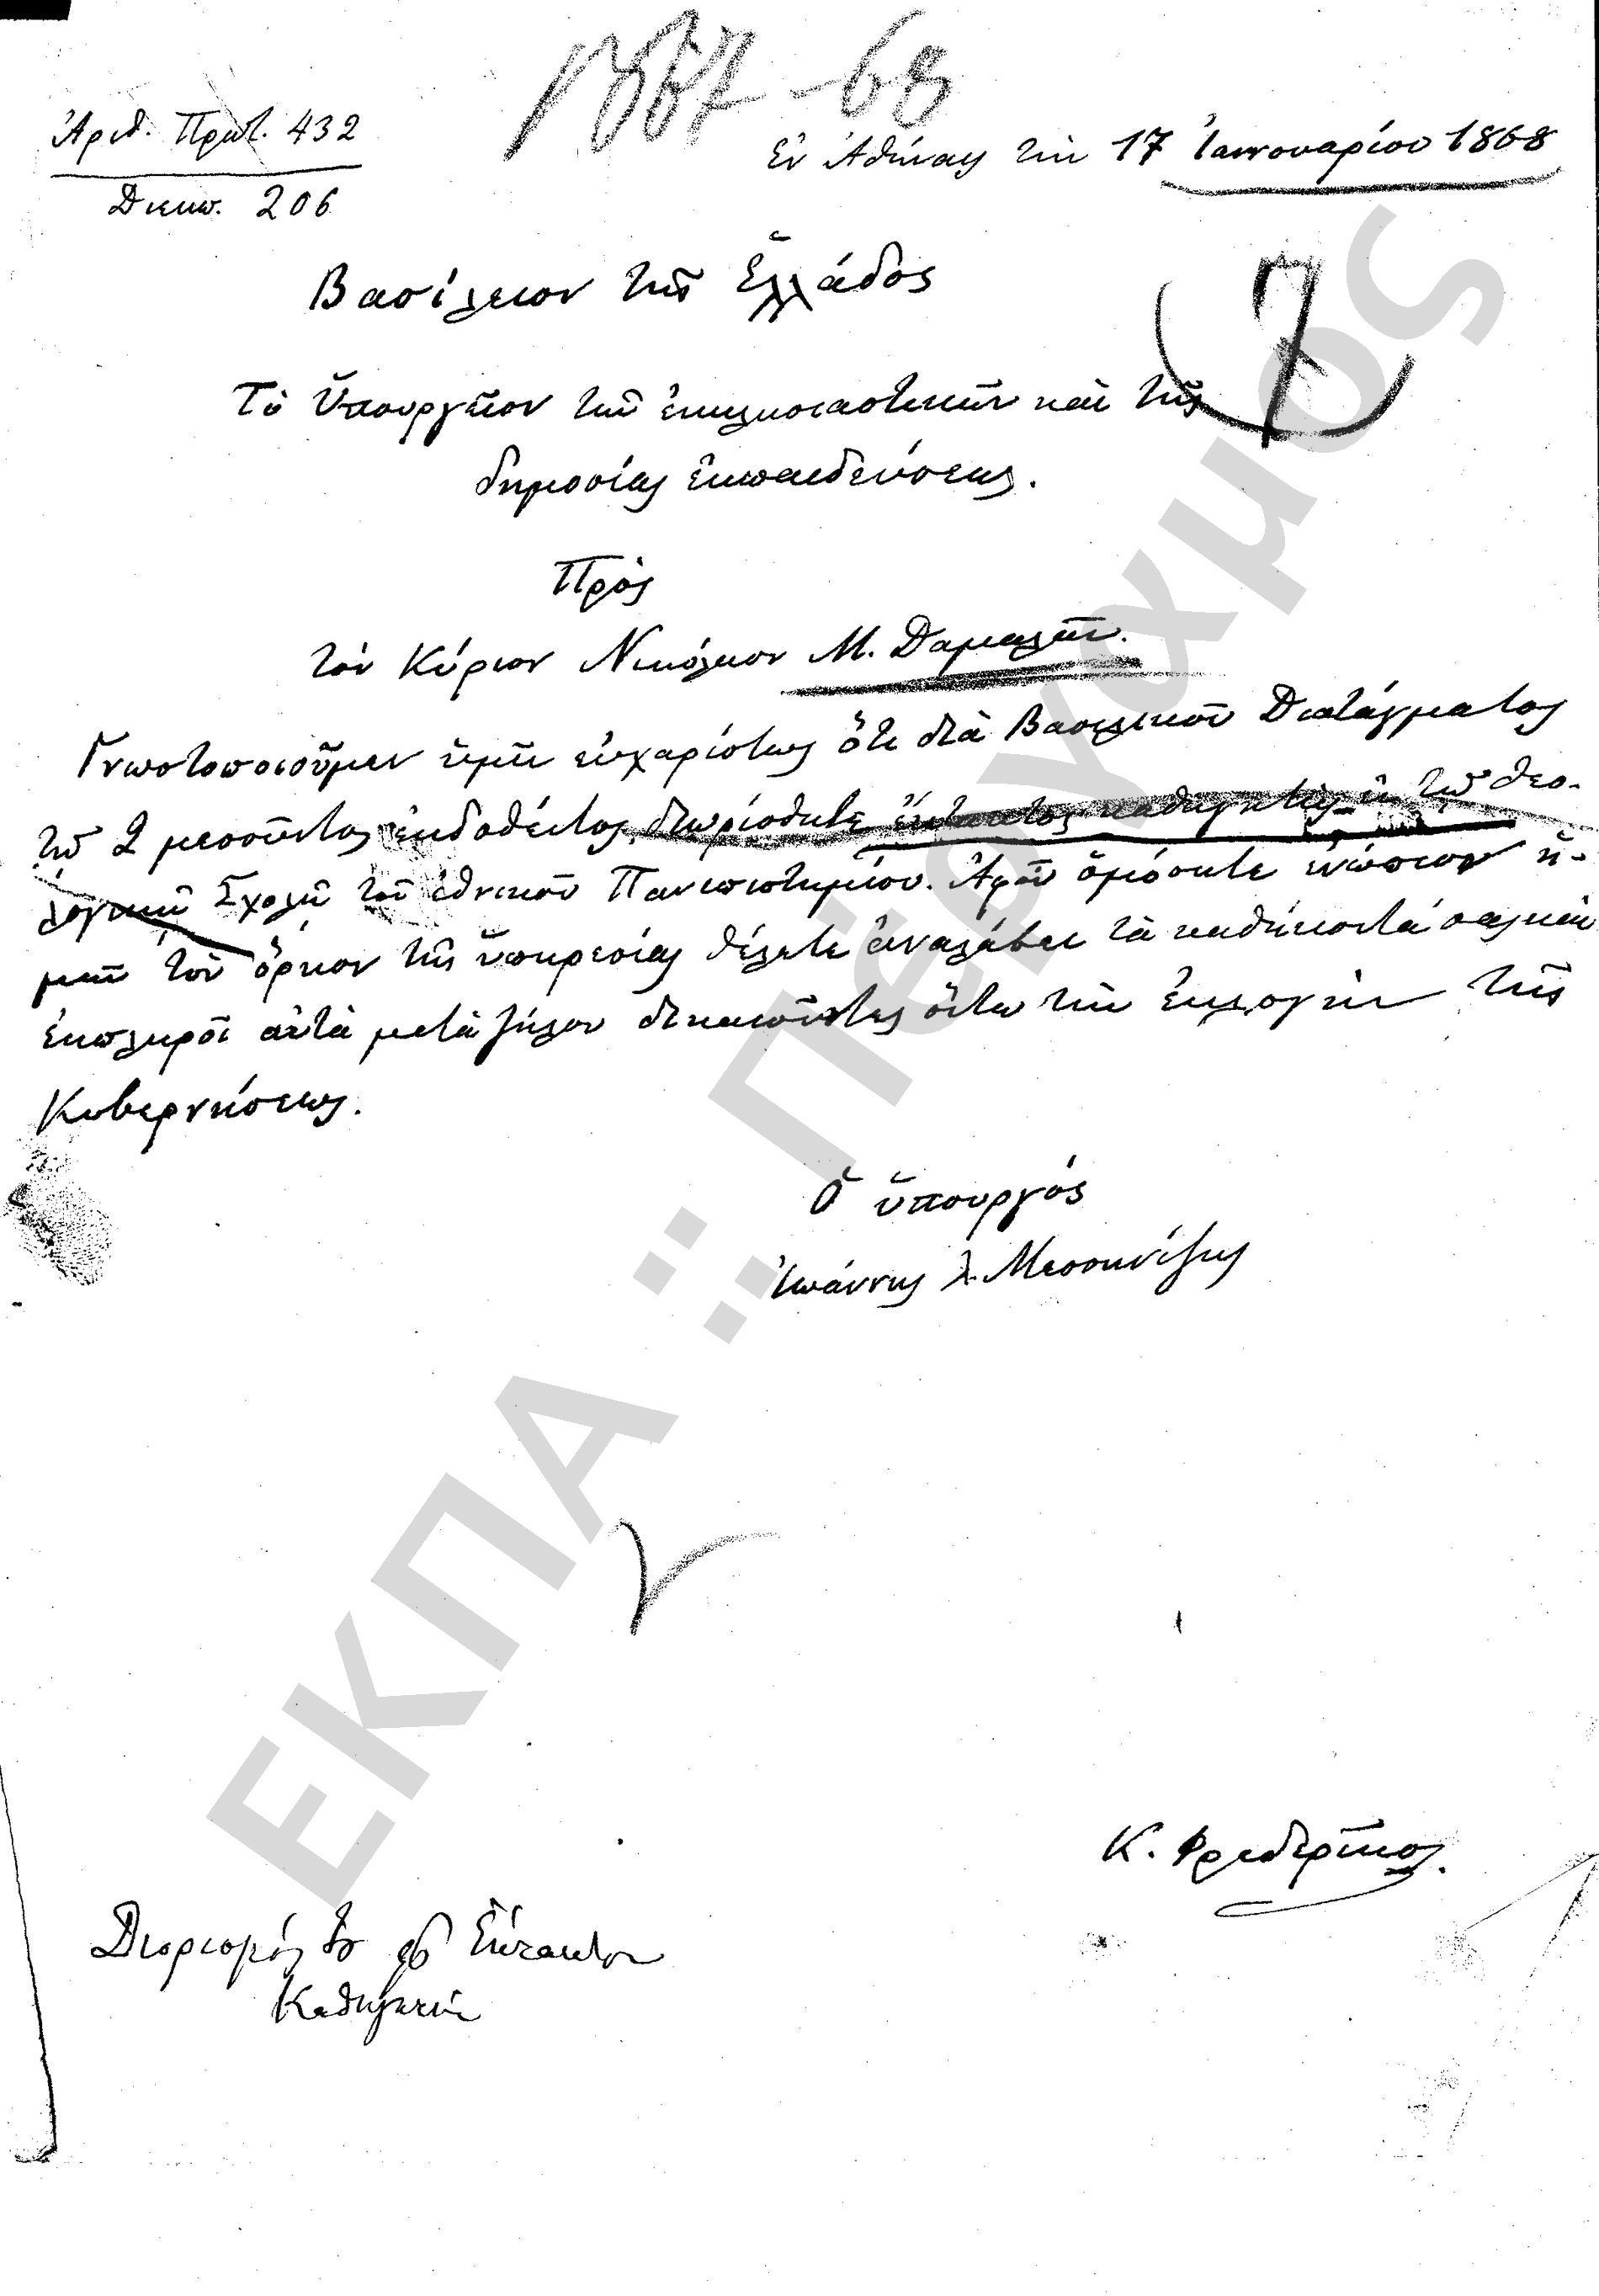 1867-68
Ἀριθ. Πρωτ. 432
Διεκπ. 206
Ἐν Ἀθήναις τὴν 17 Ἰαννουαρίου 1868
Βασίλειον τῆς Ἑλλάδος
7
Τὸ Ὑπουργεῖον τῶν ἐκκλησιαστικῶν καὶ τῆς
δημοσίας ἐκπαιδεύσεως.
Πρὸς
τὸν Κύριον Νικόλαον Μ. Δαμαλᾶν.
Γνωστοποιοῦμεν ὑμῖν εὐχαρίστως ὅτι διὰ Βασιλικοῦ Διατάγματος
τῇ 2 μεσοῦντος ἐκδοθέντος, διωρίσθητε ἔκτακτος καθηγητὴς ἐν τῇ θεο-
λογικῇ Σχολῇ τοῦ ἐθνικοῦ Πανεπιστημίου. Ἀφοῦ ὀμόσητε ἐνώπιον ἡ-
μῶν τὸν ὅρκον τῆς ὑπηρεσίας θέλετε ἀναλάβει τὰ καθήκοντά σας καὶ
ἐκπληροῖ αὐτὰ μετὰ ζήλου δικαιοῦντος οὕτω τὴν ἐκλογὴν τῆς
Κυβερνήσεως.
Ὁ ὑπουργός
Ἰωάννης Λ. Μεσσηνέζης
Κ. Φρεδερῖκος.
Διορισμός το ὡς Ἐκτάκτου
Καθηγητοῦ
ΕΚΠΑ :: Πέργαμος